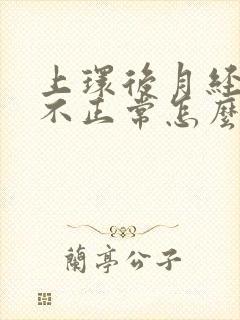 上環後月經
不正常怎麼
蘭亭公子